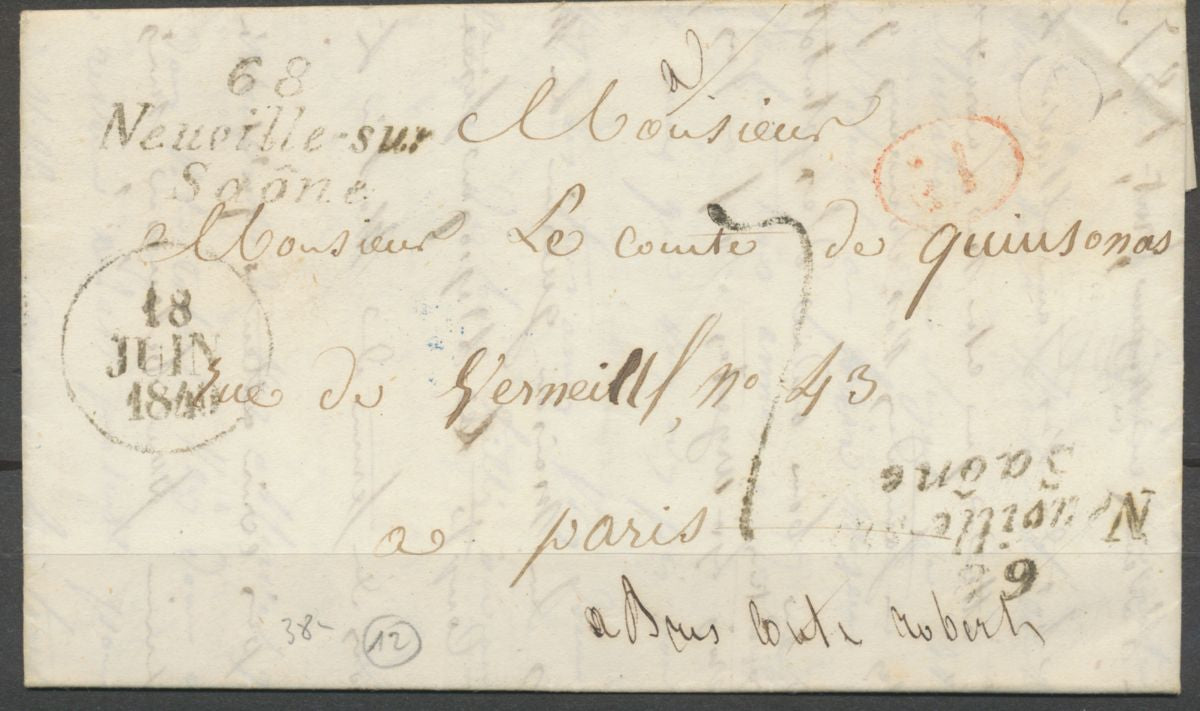 68
Neuville-sur
Saône
a
Monsieur
Monsieur Le comte de quinsonas
18
JUIN
1840
rue de Verneill, no 43
7
a paris
Neuville-sur
Saône
68
a Brie Comte robert
38-
12